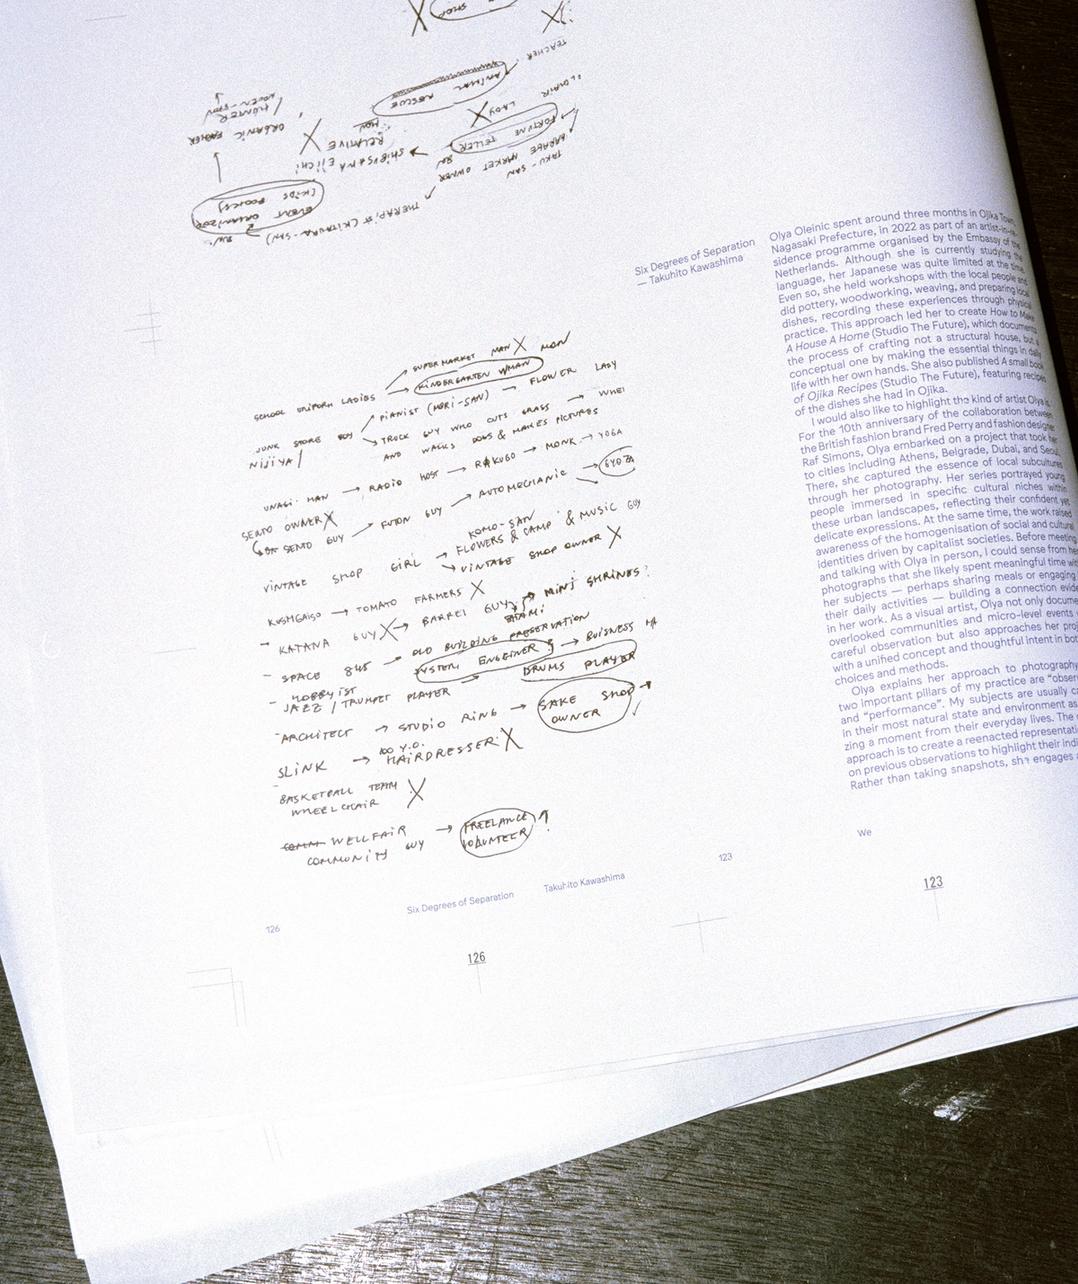 SHOP
TEACHER
ANIMAL RESCUE
LADY
FORTUNE TELLER
GARAGE MARKET OWNER
TAKU-SAN
SHIBUSAWA EIICHI
RELATIVE
ORGANIC FARMER
THERAPIST (KITAURA-SAN)
EVENT ORGANIZOR
(KIDS BOOKS)
Six Degrees of Separation
— Takuhito Kawashima
Olya Oleinic spent around three months in Ojika Town,
Nagasaki Prefecture, in 2022 as part of an artist-in-re-
sidence programme organised by the Embassy of the
Netherlands. Although she is currently studying the
language, her Japanese was quite limited at the time.
Even so, she held workshops with the local people and
did pottery, woodworking, weaving, and preparing local
dishes, recording these experiences through physical
practice. This approach led her to create How to Make
A House A Home (Studio The Future), which documents
the process of crafting not a structural house, but a
conceptual one by making the essential things in daily
life with her own hands. She also published A small book
of Ojika Recipes (Studio The Future), featuring recipes
of the dishes she had in Ojika.
I would also like to highlight the kind of artist Olya is.
For the 10th anniversary of the collaboration between
the British fashion brand Fred Perry and fashion designer
Raf Simons, Olya embarked on a project that took her
to cities including Athens, Belgrade, Dubai, and Seoul.
There, she captured the essence of local subcultures
through her photography. Her series portrayed young
people immersed in specific cultural niches within
these urban landscapes, reflecting their confident yet
delicate expressions. At the same time, the work raised
awareness of the homogenisation of social and cultural
identities driven by capitalist societies. Before meeting
and talking with Olya in person, I could sense from her
photographs that she likely spent meaningful time with
her subjects — perhaps sharing meals or engaging in
their daily activities — building a connection evident
in her work. As a visual artist, Olya not only documents
overlooked communities and micro-level events
careful observation but also approaches her
with a unified concept and thoughtful intent in both
choices and methods.
Olya explains her approach to photography
two important pillars of my practice are "
and "performance". My subjects are usually
in their most natural state and environment as
zing a moment from their everyday lives. The
approach is to create a reenacted
on previous observations to highlight their
Rather than taking snapshots, she engages
We
123
SUPERMARKET MAN X MON
SCHOOL UNIFORM LADIES → KINDERGARTEN WMAN
JUNK STORE BOY PIANIST (MORI-SAN) → FLOWER LADY
NIJIYA/ TRUCK GUY WHO CUTS GRASS → WHEI
AND WALKS DOGS & MAKES PICTURES
UNAGI MAN → RADIO HOST → RAKUGO → MONK → YOGA
SENTO OWNER X
OR SENTO GUY → FUTON GUY → AUTOMECHANIC → GYOZA
KOMO-SAN
VINTAGE SHOP GIRL → FLOWERS & CAMP & MUSIC GUY
→ VINTAGE SHOP OWNER X
→ TOMATO FARMERS X
- KATANA GUY X → BARREL GUY → MINI SHRINES?
- SPACE → OLD BUILDING PRESERVATION
HOBBYIST SYSTEM ENGEINER → BUISNESS
- JAZZ / TRUMPET PLAYER → DRUMS PLAYER
- ARCHITECT → STUDIO RING → SAKE SHOP OWNER
SLINK → 100 Y.O. HAIRDRESSER X
BASKETBALL TEAM X
WHEELCHAIR
WELLFAIR → FREELANCE VOLUNTEER
COMMUNITY GUY
126
Six Degrees of Separation Takuhito Kawashima
123
126